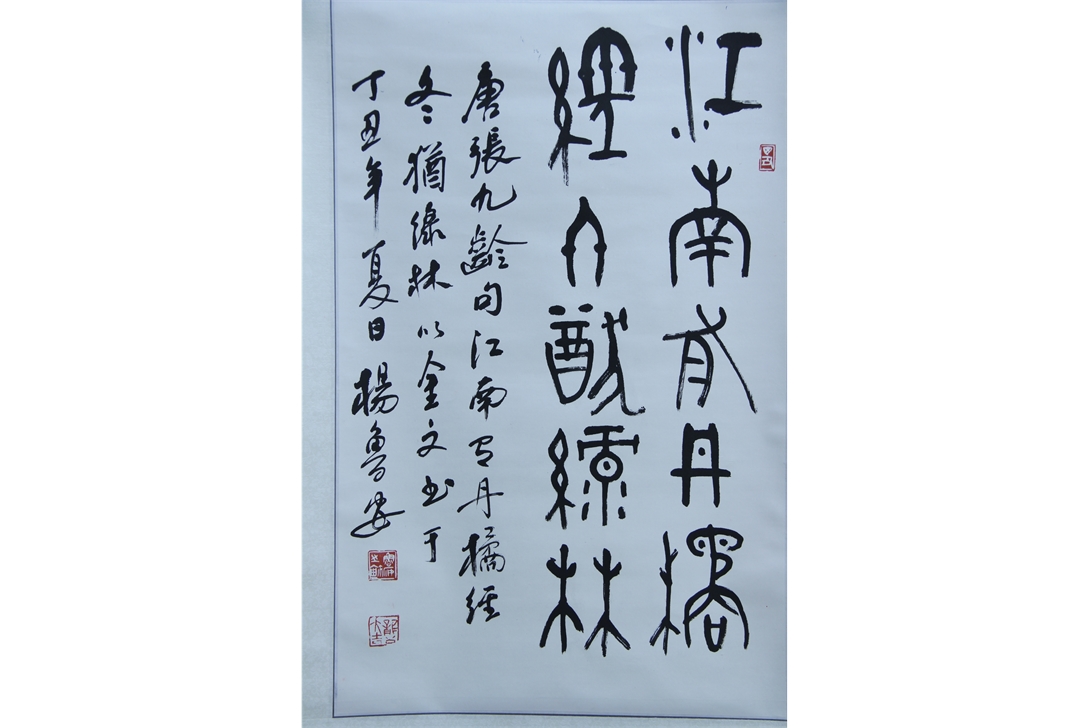 江南有丹橘
經冬猶綠林
唐張九齡句江南有丹橘經
冬猶綠林以金文書于
丁丑年夏日楊魯安